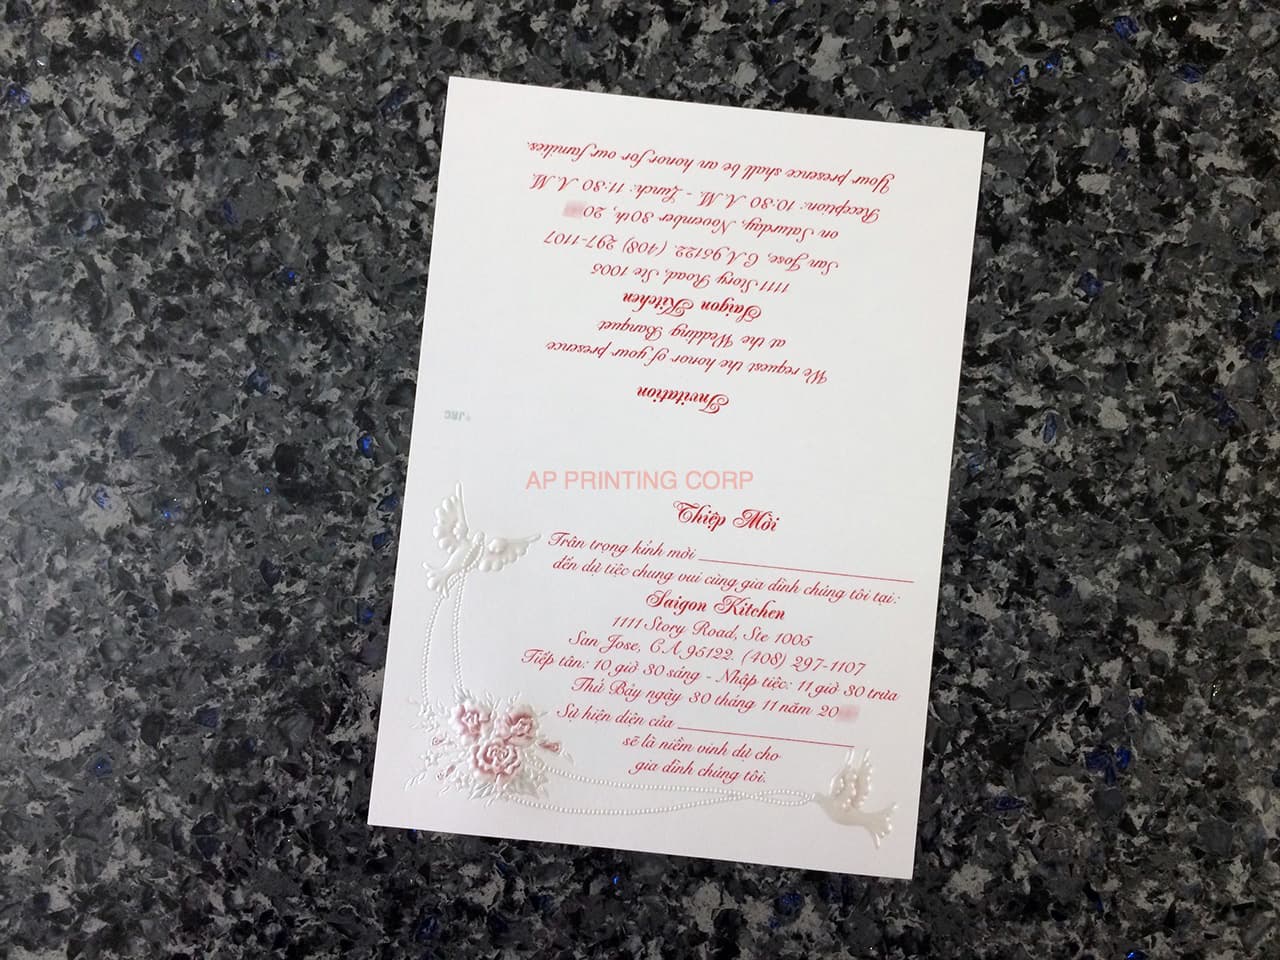 Your presence shall be an honor for our families.
Reception: 10:30 A.M. - Lunch: 11:30 A.M.
on Saturday, November 30th, 20
San Jose, CA 95122. (408) 297-1107
1111 Story Road, Ste 1005
Saigon Kitchen
at the Wedding Banquet
We request the honor of your presence
Invitation
JRC
AP PRINTING CORP
Thiệp Mời
Trân trọng kính mời
đến dự tiệc chung vui cùng gia đình chúng tôi tại:
Saigon Kitchen
1111 Story Road, Ste 1005
San Jose, CA 95122. (408) 297-1107
Tiếp tân: 10 giờ 30 sáng - Nhập tiệc: 11 giờ 30 trưa
Thứ Bảy ngày 30 tháng 11 năm 20
Sự hiện diện của
sẽ là niềm vinh dự cho
gia đình chúng tôi.